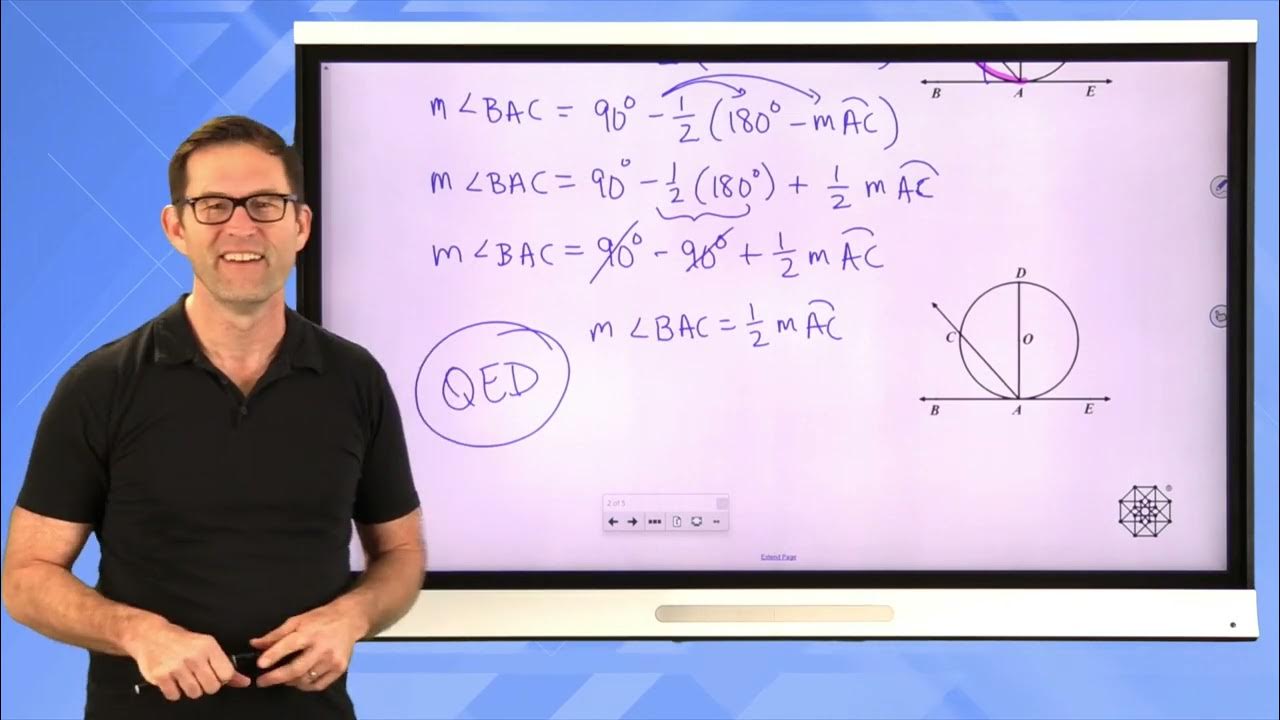 m∠BAC = 90° - 1/2 (180° - mAC)
B A E
m∠BAC = 90° - 1/2 (180°) + 1/2 mAC
m∠BAC = 90° - 90° + 1/2 mAC
D
m∠BAC = 1/2 mAC
C O
QED
B A E
2 of 5
Extend Page
®